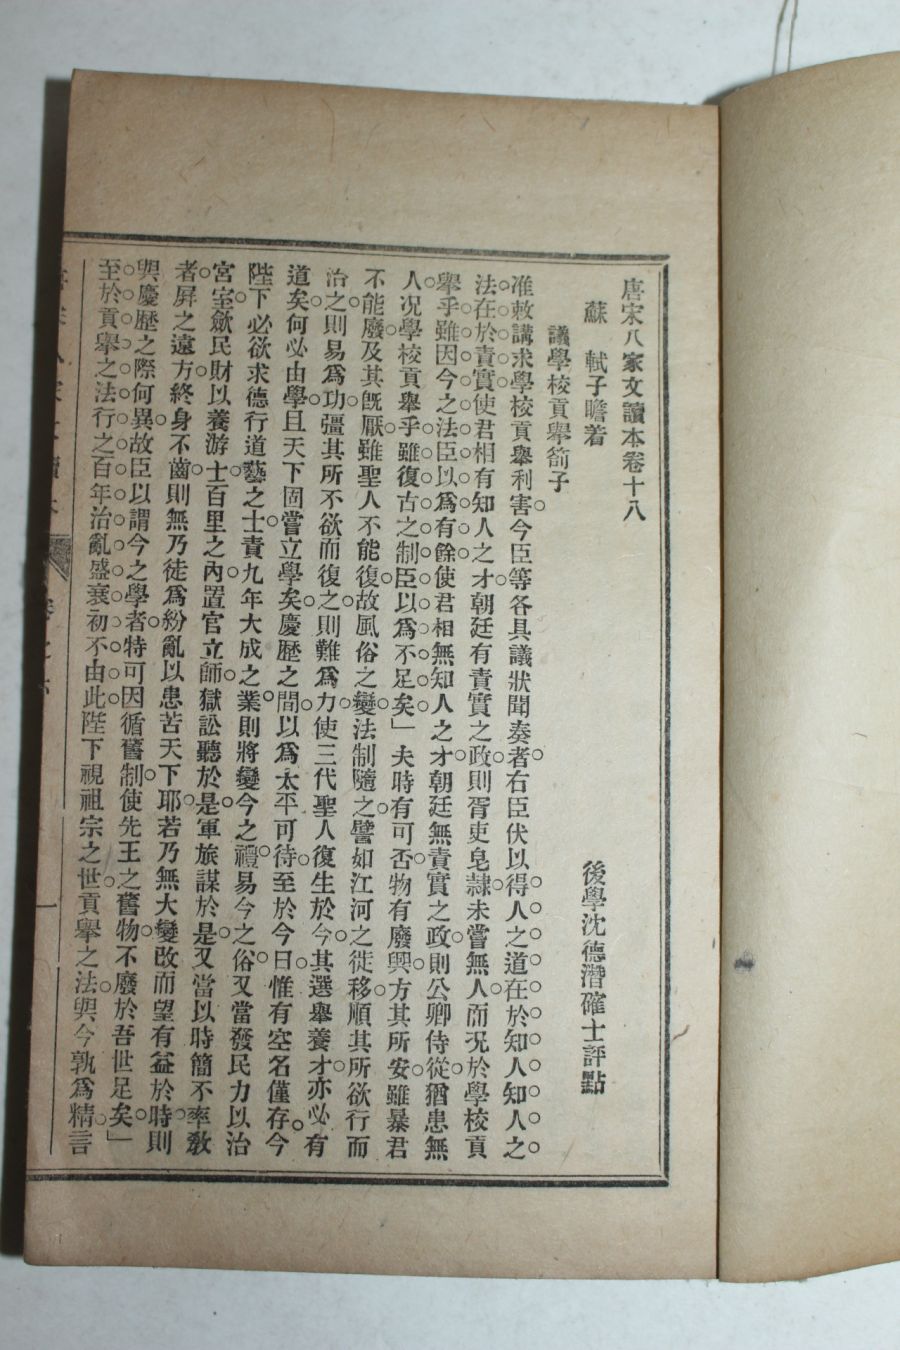 唐宋八家文讀本卷十八
蘇　軾子瞻着　後學沈德潛確士評點
議學校貢舉箚子
准敕講求學校貢舉利害今臣等各具議狀聞奏者右臣伏以得人之道在於知人知人之
法在於責實使君相有知人之才朝廷有責實之政則胥吏皂隷未嘗無人而况於學校貢
舉乎雖因今之法臣以爲有餘使君相無知人之才朝廷無責實之政則公卿侍從猶患無
人况學校貢舉乎雖復古之制臣以爲不足矣」夫時有可否物有廢興方其所安雖暴君
不能廢及其旣厭雖聖人不能復故風俗之變法制隨之譬如江河之徙移順其所欲行而
治之則易爲功彊其所不欲而復之則難爲力使三代聖人復生於今其選舉養才亦必有
道矣何必由學且天下固嘗立學矣慶歷之間以爲太平可待至於今日惟有空名僅存今
陛下必欲求德行道藝之士責九年大成之業則將變今之禮易今之俗又當發民力以治
宮室斂民財以養游士百里之內置官立師獄訟聽於是軍旅謀於是又當以時簡不率敎
者屛之遠方終身不齒則無乃徒爲紛亂以患苦天下耶若乃無大變改而望有益於時則
與慶歷之際何異故臣以謂今之學者特可因循舊制使先王之舊物不廢於吾世足矣」
至於貢舉之法行之百年治亂盛衰初不由此陛下視祖宗之世貢舉之法與今孰爲精言